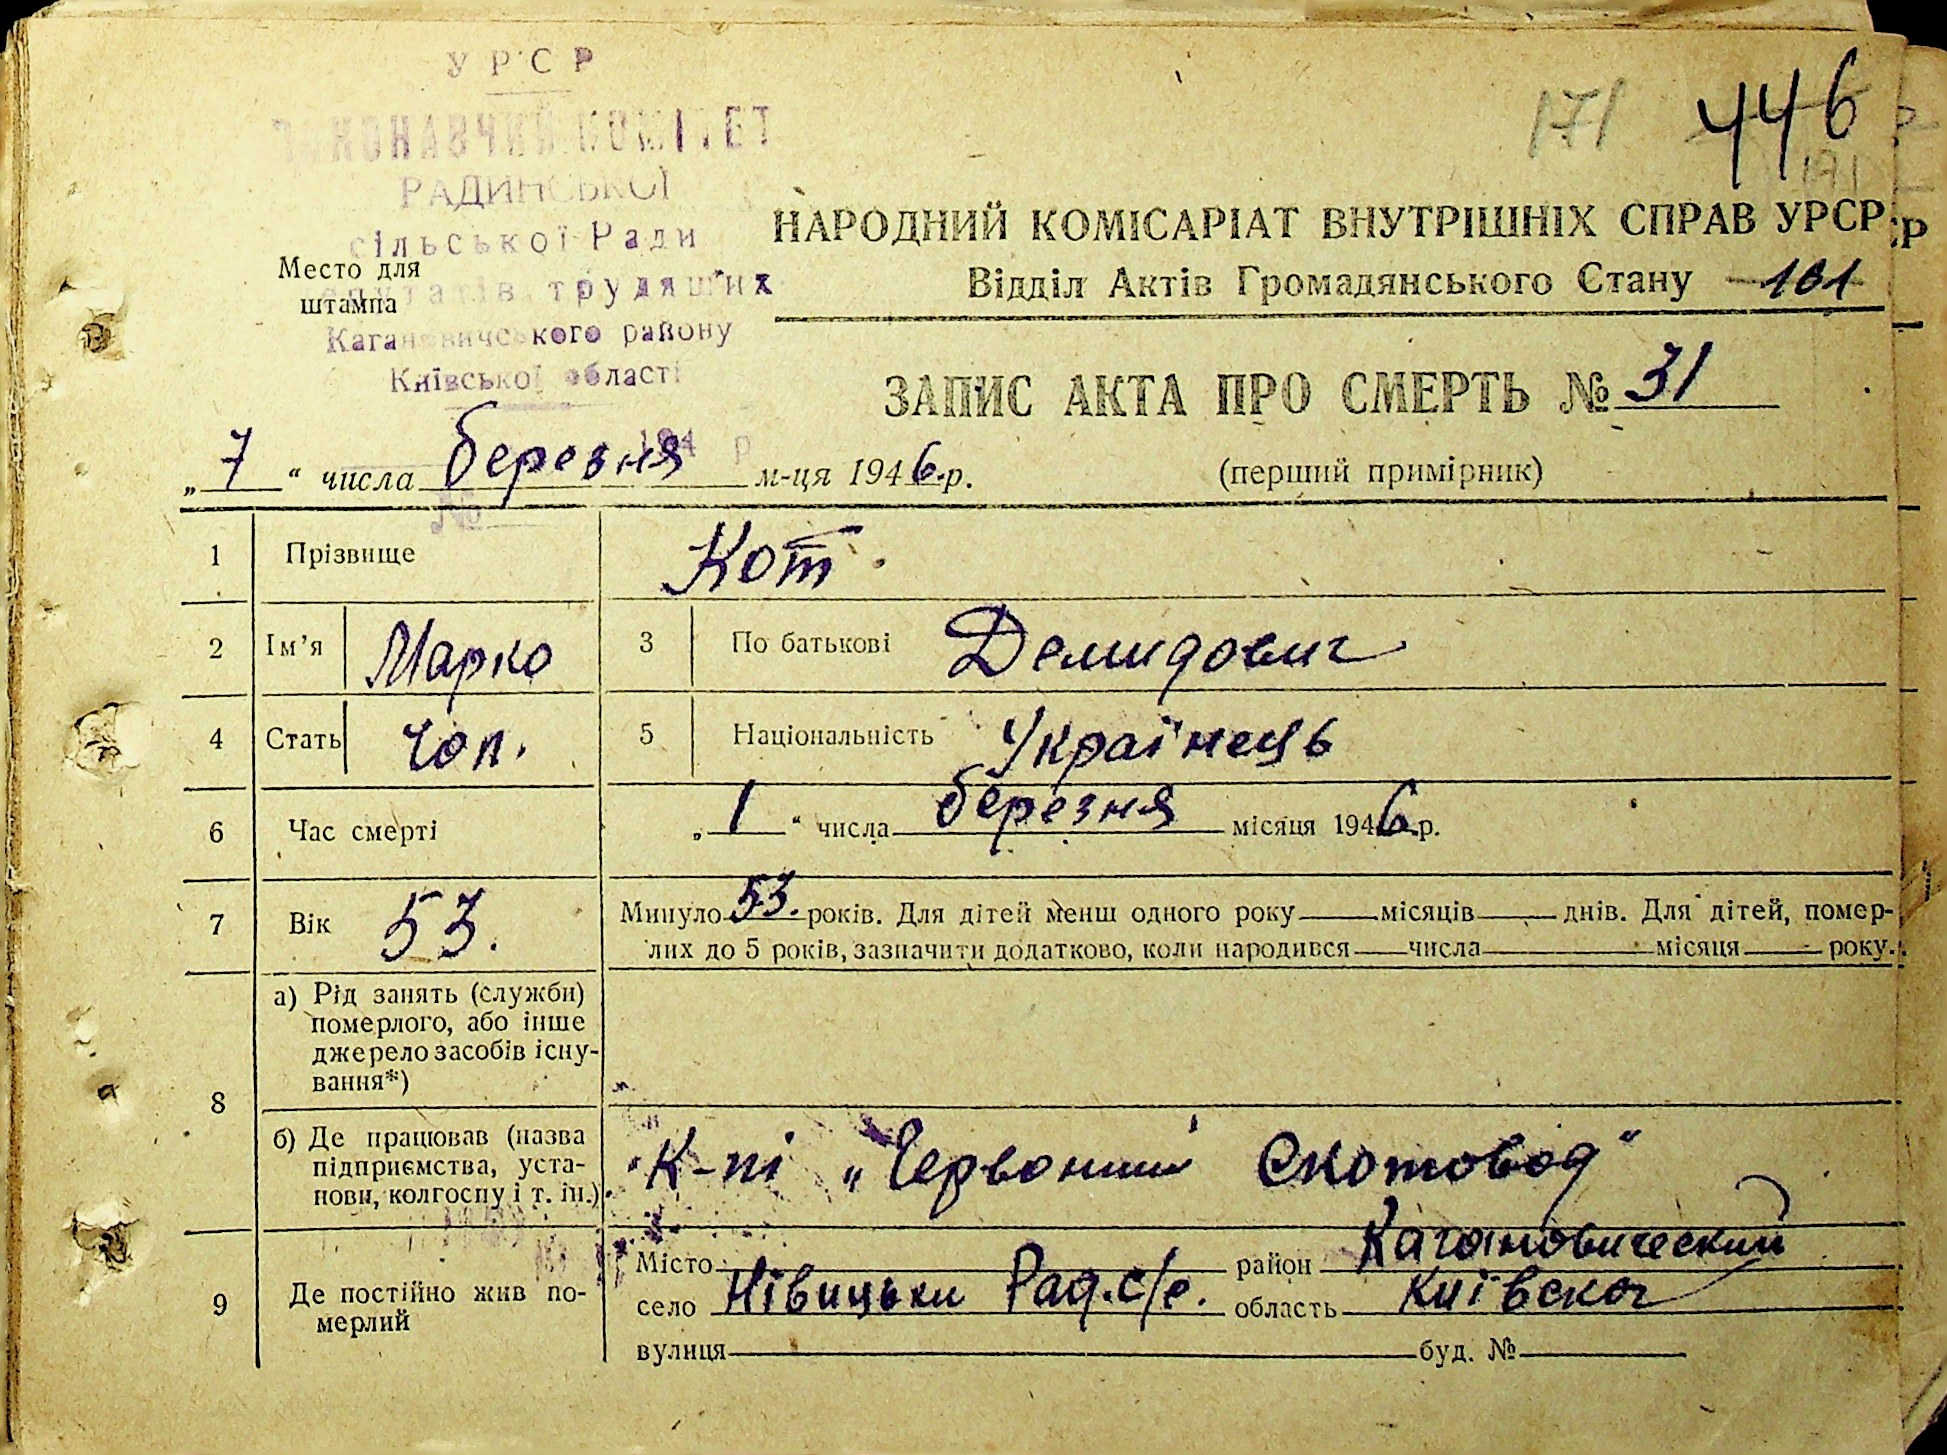 УРСР
ВИКОНАВЧИЙ КОМІТЕТ
РАДИНСЬКОЇ
сільської Ради
депутатів трудящих
Кагановичського району
Київської області
194 р
№
171 446
171
Место для
штампа
НАРОДНИЙ КОМІСАРІАТ ВНУТРІШНІХ СПРАВ УРСР
Відділ Актів Громадянського Стану 101
ЗАПИС АКТА ПРО СМЕРТЬ № 31
„ 7 “ числа березня м-ця 1946.р.
(перший примірник)
1 Прізвище Кот
2 Ім’я Марко 3 По батькові Демидович
4 Стать чол. 5 Національність Українець
6 Час смерті „ 1 “ числа березня місяця 1946.р.
7 Вік 53. Минуло 53. років. Для дітей менш одного року місяців днів. Для дітей, помер-
лих до 5 років, зазначити додатково, коли народився числа місяця року.
8 а) Рід занять (служби)
померлого, або інше
джерело засобів існу-
вання*)
б) Де працював (назва
підприємства, уста-
нови, колгоспу і т. ін.)
К-пі „Червоний Скотовод“
9 Де постійно жив по-
мерлий
Місто район Кагановический
село Нівицьки Рад.с/с. область Київској
вулиця буд. №